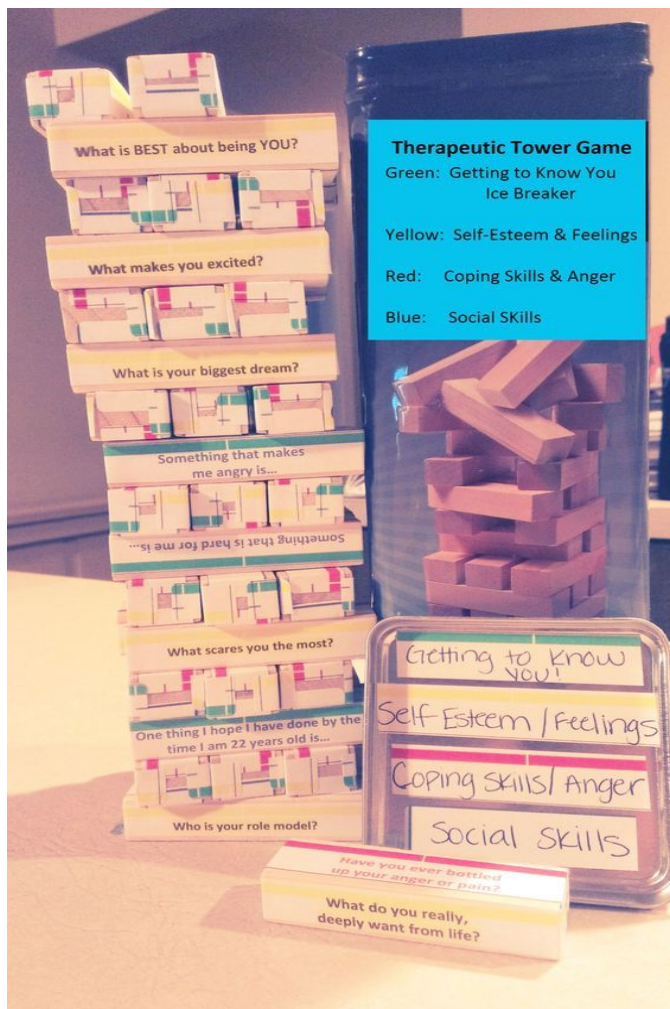 What is BEST about being YOU?
What makes you excited?
What is your biggest dream?
Something that makes
me angry is...
Something that is hard for me is...
What scares you the most?
One thing I hope I have done by the
time I am 22 years old is...
Who is your role model?
Therapeutic Tower Game
Green: Getting to Know You
Ice Breaker
Yellow: Self-Esteem & Feelings
Red: Coping Skills & Anger
Blue: Social SKills
Getting to Know
You!
Self Esteem / Feelings
Coping Skills / Anger
Social Skills
Have you ever bottled
up your anger or pain?
What do you really,
deeply want from life?